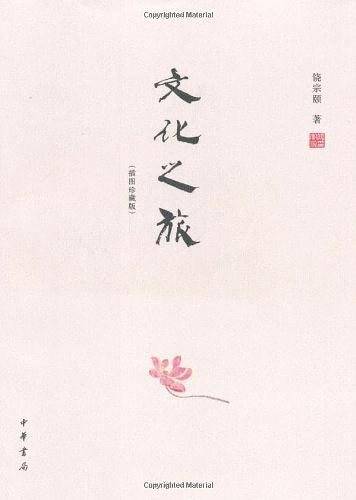 Copyrighted Material
饶宗颐 著
文化之旅
（插图珍藏版）
中華書局
Copyrighted Material